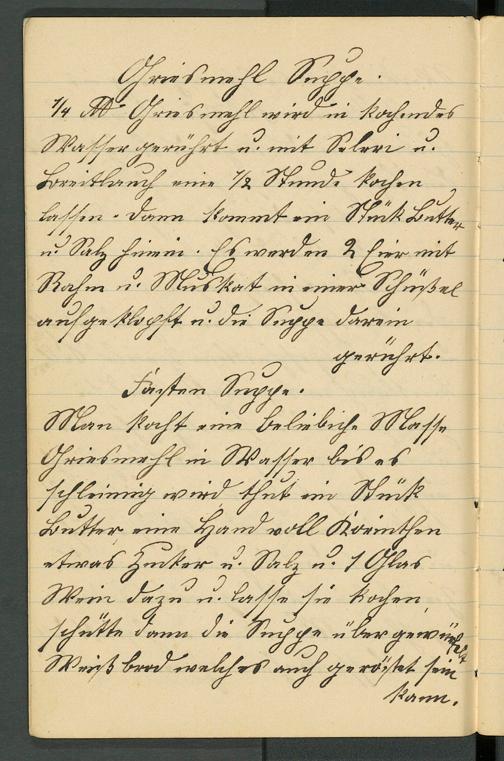 Griesmehl Suppe.
1/4 ℔ Griesmehl wird in kochendes
Wasser gerührt u. mit Seleri u.
Breitlauch eine 1/2 Stunde kochen
lassen. Dann kommt ein Stück Butter
u. Salz hinein. Es werden 2 Eier mit
Rahm u. Muskat in einer Schüßel
aufgeklopft u. die Suppe darein
gerührt.
Fasten Suppe.
Man kocht eine beliebiche Masse
Griesmehl in Wasser bis es
schleimig wird thut ein Stück
Butter, eine Hand voll Korinthen
etwas Zucker u. Salz u. 1 Glas
Wein dazu u. lasse sie kochen,
schütte dann die Suppe über gewürfelt
Weißbrod welches auch geröstet sein
kann.